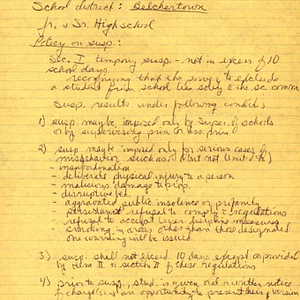 School district: Belchertown
Jr. & Sr. High school
Policy on susp.:
Sec. I temporary susp. - not in excess of 10
school days.
recognizing that the to exclude
a student from school lies the sc. comm
Susp. results under following condit.
1) susp. may be imposed only by Super. of schools
or by supervising prin or ass. prin
2) susp may be imposed only for serious cases of
misbehavior such as: (but not limited to)
- insubordination
- deliberate physical injury to a person
- malicious damage to prop.
- disruptive
- aggravated public insolence or profanity
- persistent refusal to comply & regulations
- refusal to accept lesser discipline measures
- smoking in areas other than those designated
one warning will be issued.
3) susp. shall not exceed 10 days except as provided
by item in section II of these regulations
4) prior to susp., stud. is given oral or written notice
of charges, & an opportunity to present their version